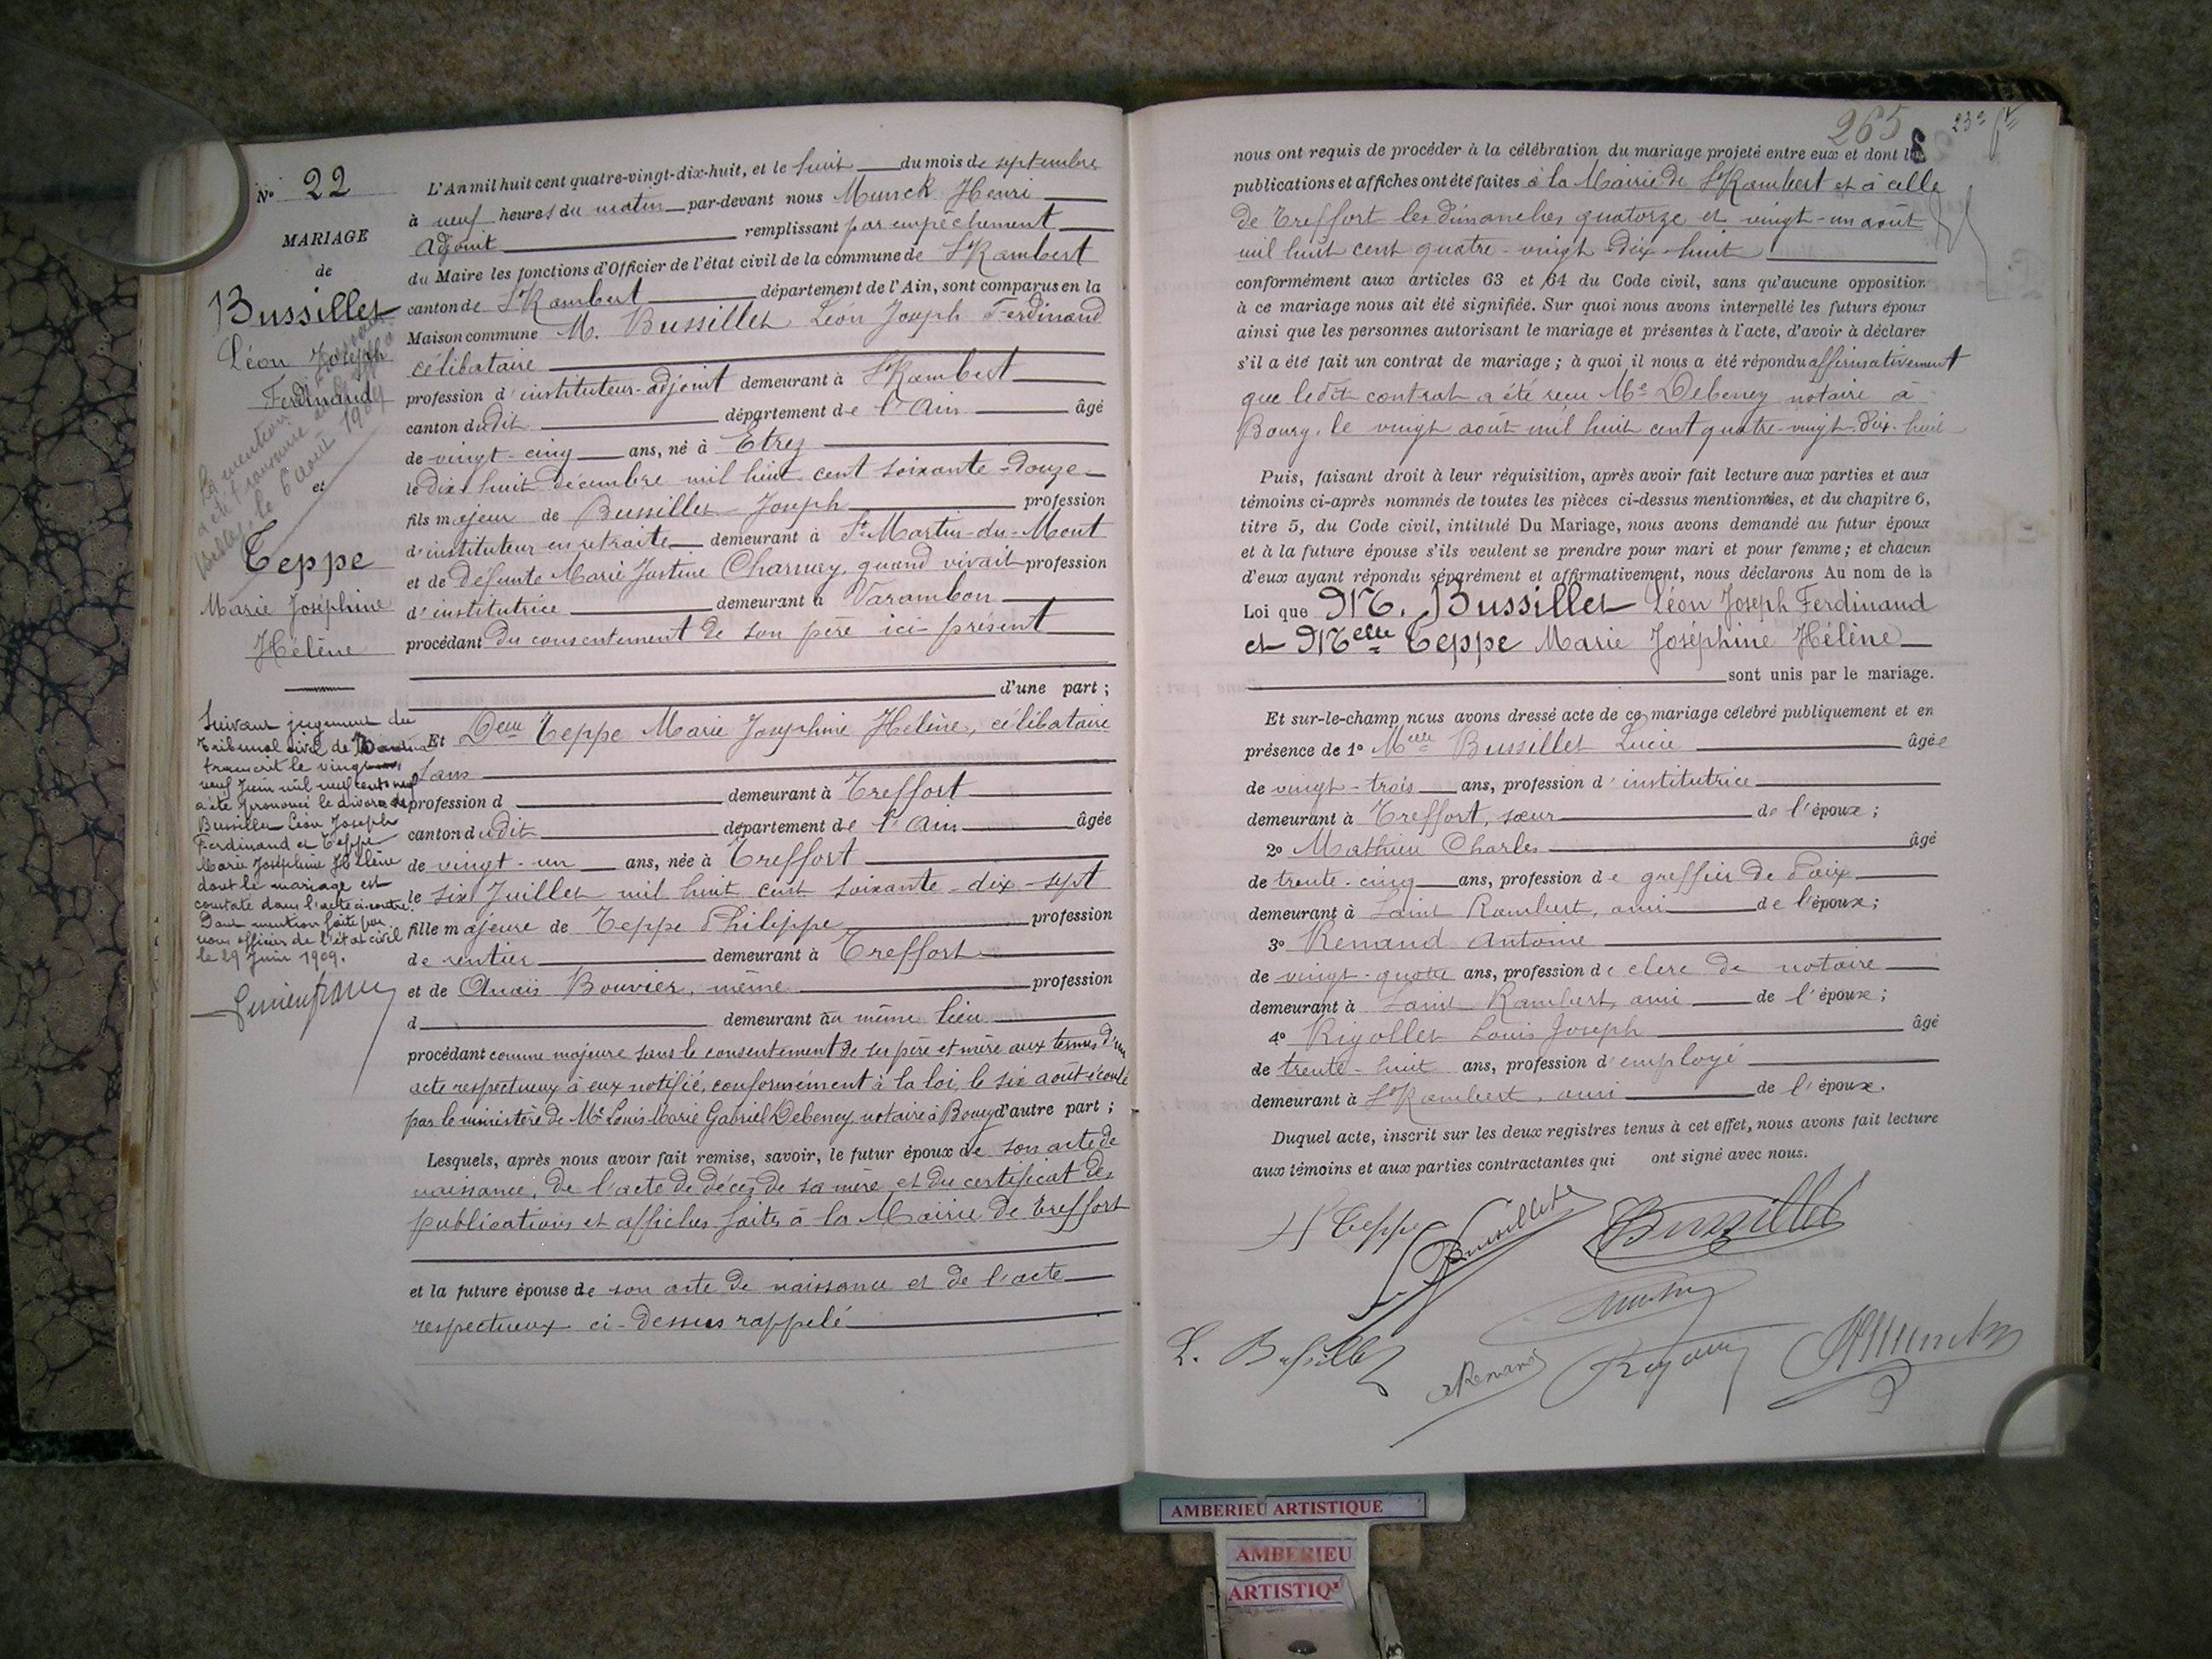 Nº 22
MARIAGE
de
Bussillet
Léon Joseph
Ferdinand
et
Teppe
Marie Joséphine
Hélène
La mention
a été transmise
le 6 août 1909
Suivant jugement du
Tribunal civil de
transcrit le vingt
neuf Juin mil neuf cent neuf
a été prononcé le divorce de
Bussillet Léon Joseph
Ferdinand et Teppe
Marie Joséphine Hélène
dont le mariage est
constaté dans l'acte ci-contre.
Dont mention faite par
nous officier de l'état civil
le 29 Juin 1909.
L'An mil huit cent quatre-vingt-dix-huit, et le huit du mois de septembre
à neuf heures du matin par-devant nous Munck Henri
Adjoint remplissant par empêchement
du Maire les fonctions d'Officier de l'état civil de la commune de St Rambert
canton de St Rambert département de l'Ain, sont comparus en la
Maison commune M. Bussillet Léon Joseph Ferdinand
célibataire
profession d'instituteur-adjoint demeurant à St Rambert
canton dudit département de l'Ain âgé
de vingt-cinq ans, né à Etrez
le dix huit décembre mil huit cent soixante-douze
fils majeur de Bussillet Joseph profession
d'instituteur en retraite demeurant à St Martin-du-Mont
et de défunte Marie Justine Charnay, quand vivait profession
d'institutrice demeurant à Varambon
procédant du consentement de son père ici-présent
d'une part ;
Et Delle Teppe Marie Joséphine Hélène, célibataire
sans
profession d demeurant à Treffort
canton dudit département de l'Ain âgée
de vingt-un ans, née à Treffort
le six Juillet mil huit cent soixante-dix-sept
fille majeure de Teppe Philippe profession
de rentier demeurant à Treffort
et de Anaïs Bouvier, même profession
d demeurant au même lieu
procédant comme majeure sans le consentement de ses père et mère aux termes d'un
acte respectueux à eux notifié, conformément à la loi, le six août écoulé
par le ministère de Me Louis Marie Gabriel Debeney notaire à Bourg d'autre part ;
Lesquels, après nous avoir fait remise, savoir, le futur époux de son acte de
naissance, de l'acte de décès de sa mère et du certificat des
publications et affiches faites à la Mairie de Treffort
et la future épouse de son acte de naissance et de l'acte
respectueux ci-dessus rappelé
265
nous ont requis de procéder à la célébration du mariage projeté entre eux et dont les
publications et affiches ont été faites à la Mairie de St Rambert et à celle
de Treffort les dimanches quatorze et vingt-un août
mil huit cent quatre-vingt-dix-huit
conformément aux articles 63 et 64 du Code civil, sans qu'aucune opposition
à ce mariage nous ait été signifiée. Sur quoi nous avons interpellé les futurs époux
ainsi que les personnes autorisant le mariage et présentes à l'acte, d'avoir à déclarer
s'il a été fait un contrat de mariage ; à quoi il nous a été répondu affirmativement
que ledit contrat a été reçu Me Debeney notaire à
Bourg, le vingt août mil huit cent quatre-vingt-dix-huit
Puis, faisant droit à leur réquisition, après avoir fait lecture aux parties et aux
témoins ci-après nommés de toutes les pièces ci-dessus mentionnées, et du chapitre 6,
titre 5, du Code civil, intitulé Du Mariage, nous avons demandé au futur époux
et à la future épouse s'ils veulent se prendre pour mari et pour femme ; et chacun
d'eux ayant répondu séparément et affirmativement, nous déclarons Au nom de la
Loi que M. Bussillet Léon Joseph Ferdinand
et Melle Teppe Marie Joséphine Hélène
sont unis par le mariage.
Et sur-le-champ nous avons dressé acte de ce mariage célébré publiquement et en
présence de 1º Melle Bussillet Lucie âgée
de vingt-trois ans, profession d'institutrice
demeurant à Treffort, sœur de l'époux ;
2º Mathieu Charles âgé
de trente-cinq ans, profession de greffier de Paix
demeurant à Saint Rambert, ami de l'époux ;
3º Renand Antoine
de vingt-quatre ans, profession de clerc de notaire
demeurant à Saint Rambert, ami de l'époux ;
4º Rigollet Louis Joseph âgé
de trente-huit ans, profession d'employé
demeurant à St Rambert, ami de l'époux.
Duquel acte, inscrit sur les deux registres tenus à cet effet, nous avons fait lecture
aux témoins et aux parties contractantes qui ont signé avec nous.
H Teppe Bussillet Bussillet
L. Bussillet
Renand
AMBERIEU ARTISTIQUE
AMBERIEU
ARTISTIQ